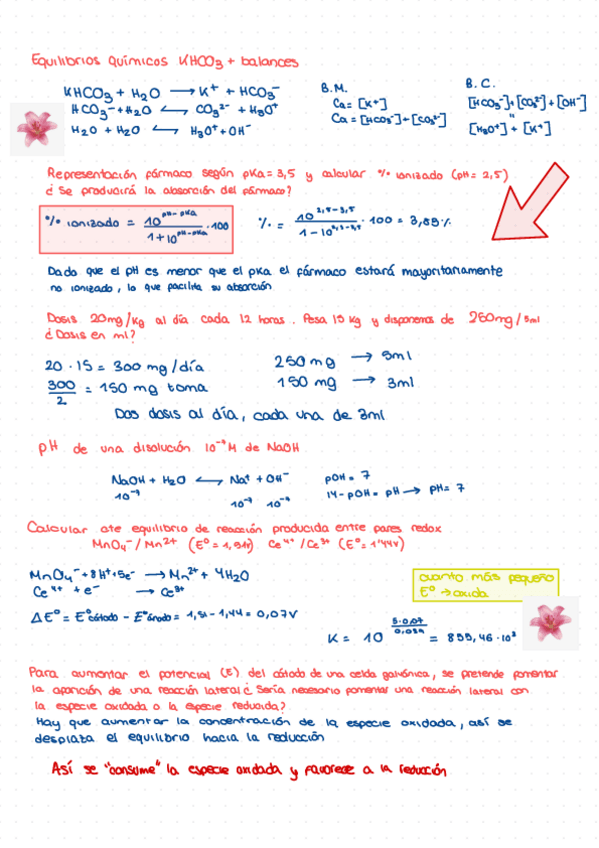 Equilibrios químicos KHCO3 + balances
KHCO3 + H2O → K+ + HCO3-
HCO3- + H2O ↔ CO3²- + H3O+
H2O + H2O ↔ H3O+ + OH-
B.M.
Ca = [K+]
Ca = [HCO3-] + [CO3²-]
B.C.
[HCO3-] + [CO3²-] + [OH-]
"
[H3O+] + [K+]
Representación fármaco según pKa = 3,5 y calcular % ionizado (pH = 2,5)
¿Se producirá la absorción del fármaco?
% ionizado = 10^pH-pKa / 1+10^pH-pKa · 100
Dado que el pH es menor que el pKa el fármaco estará mayoritariamente
no ionizado, lo que facilita su absorción
Dosis 20mg/kg al día cada 12 horas. Pesa 15 kg y disponemos de 250mg/5ml
¿Dosis en ml?
20 · 15 = 300 mg/día
300/2 = 150 mg toma
250 mg → 5ml
150 mg → 3ml
Dos dosis al día, cada una de 3ml
pH de una disolución 10^-7 M de NaOH
NaOH + H2O ↔ Na+ + OH-
10^-7 10^-7 10^-7
pOH = 7
14 - pOH = pH → pH = 7
Calcular cte equilibrio de reacción producida entre pares redox
MnO4-/Mn2+ (E° = 1,51v) Ce4+/Ce3+ (E° = 1'44v)
MnO4- + 8H+ + 5e- → Mn2+ + 4H2O
Ce4+ + e- → Ce3+
ΔE° = E°cátodo - E°ánodo = 1,51 - 1,44 = 0,07V
cuanto más pequeño
E° → oxida
K = 10^(5·0,07/0,059) = 855,46·10³
Para aumentar el potencial (E) del cátodo de una celda galvánica, se pretende fomentar
la aparición de una reacción lateral ¿Sería necesario fomentar una reacción lateral con
la especie oxidada o la especie reducida?
Hay que aumentar la concentración de la especie oxidada, así se
desplaza el equilibrio hacia la reducción
Así se "consume" la especie oxidada y favorece a la reducción